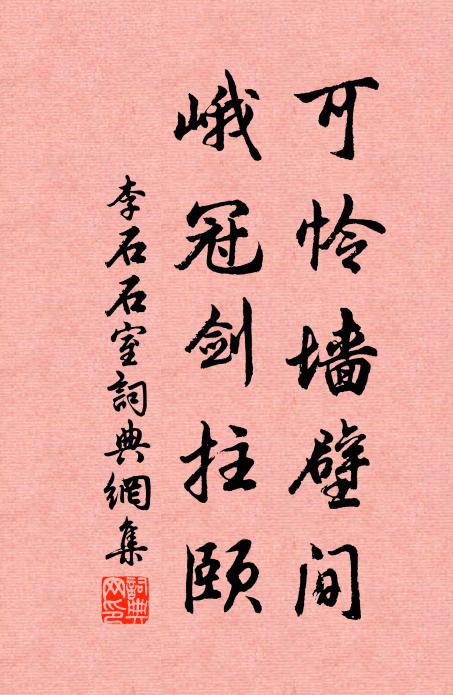 可怜墙壁间
峨冠剑拄颐
李石石室詞典網集
詞典網印